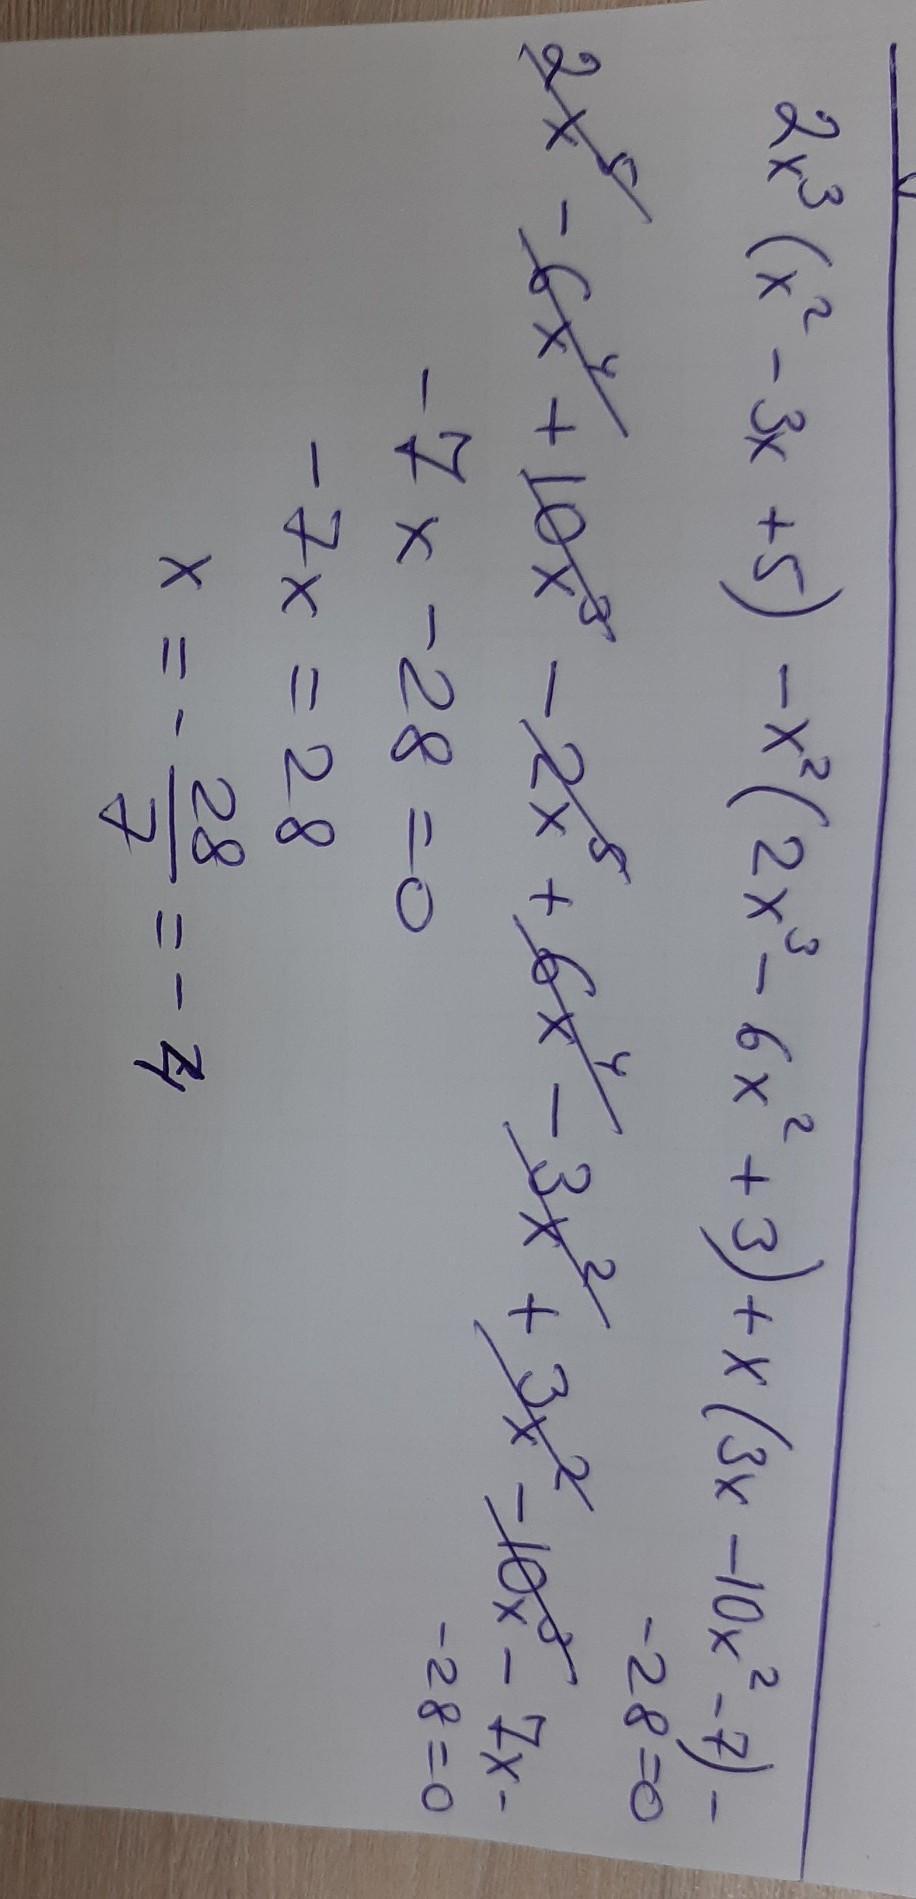 2x³(x² - 3x + 5) - x²(2x³ - 6x² + 3) + x(3x - 10x² - 7) -
- 28 = 0
2x⁵ - 6x⁴ + 10x³ - 2x⁵ + 6x⁴ - 3x² + 3x² - 10x³ - 7x -
- 28 = 0
- 7x - 28 = 0
- 7x = 28
x = - 28/7 = - 4